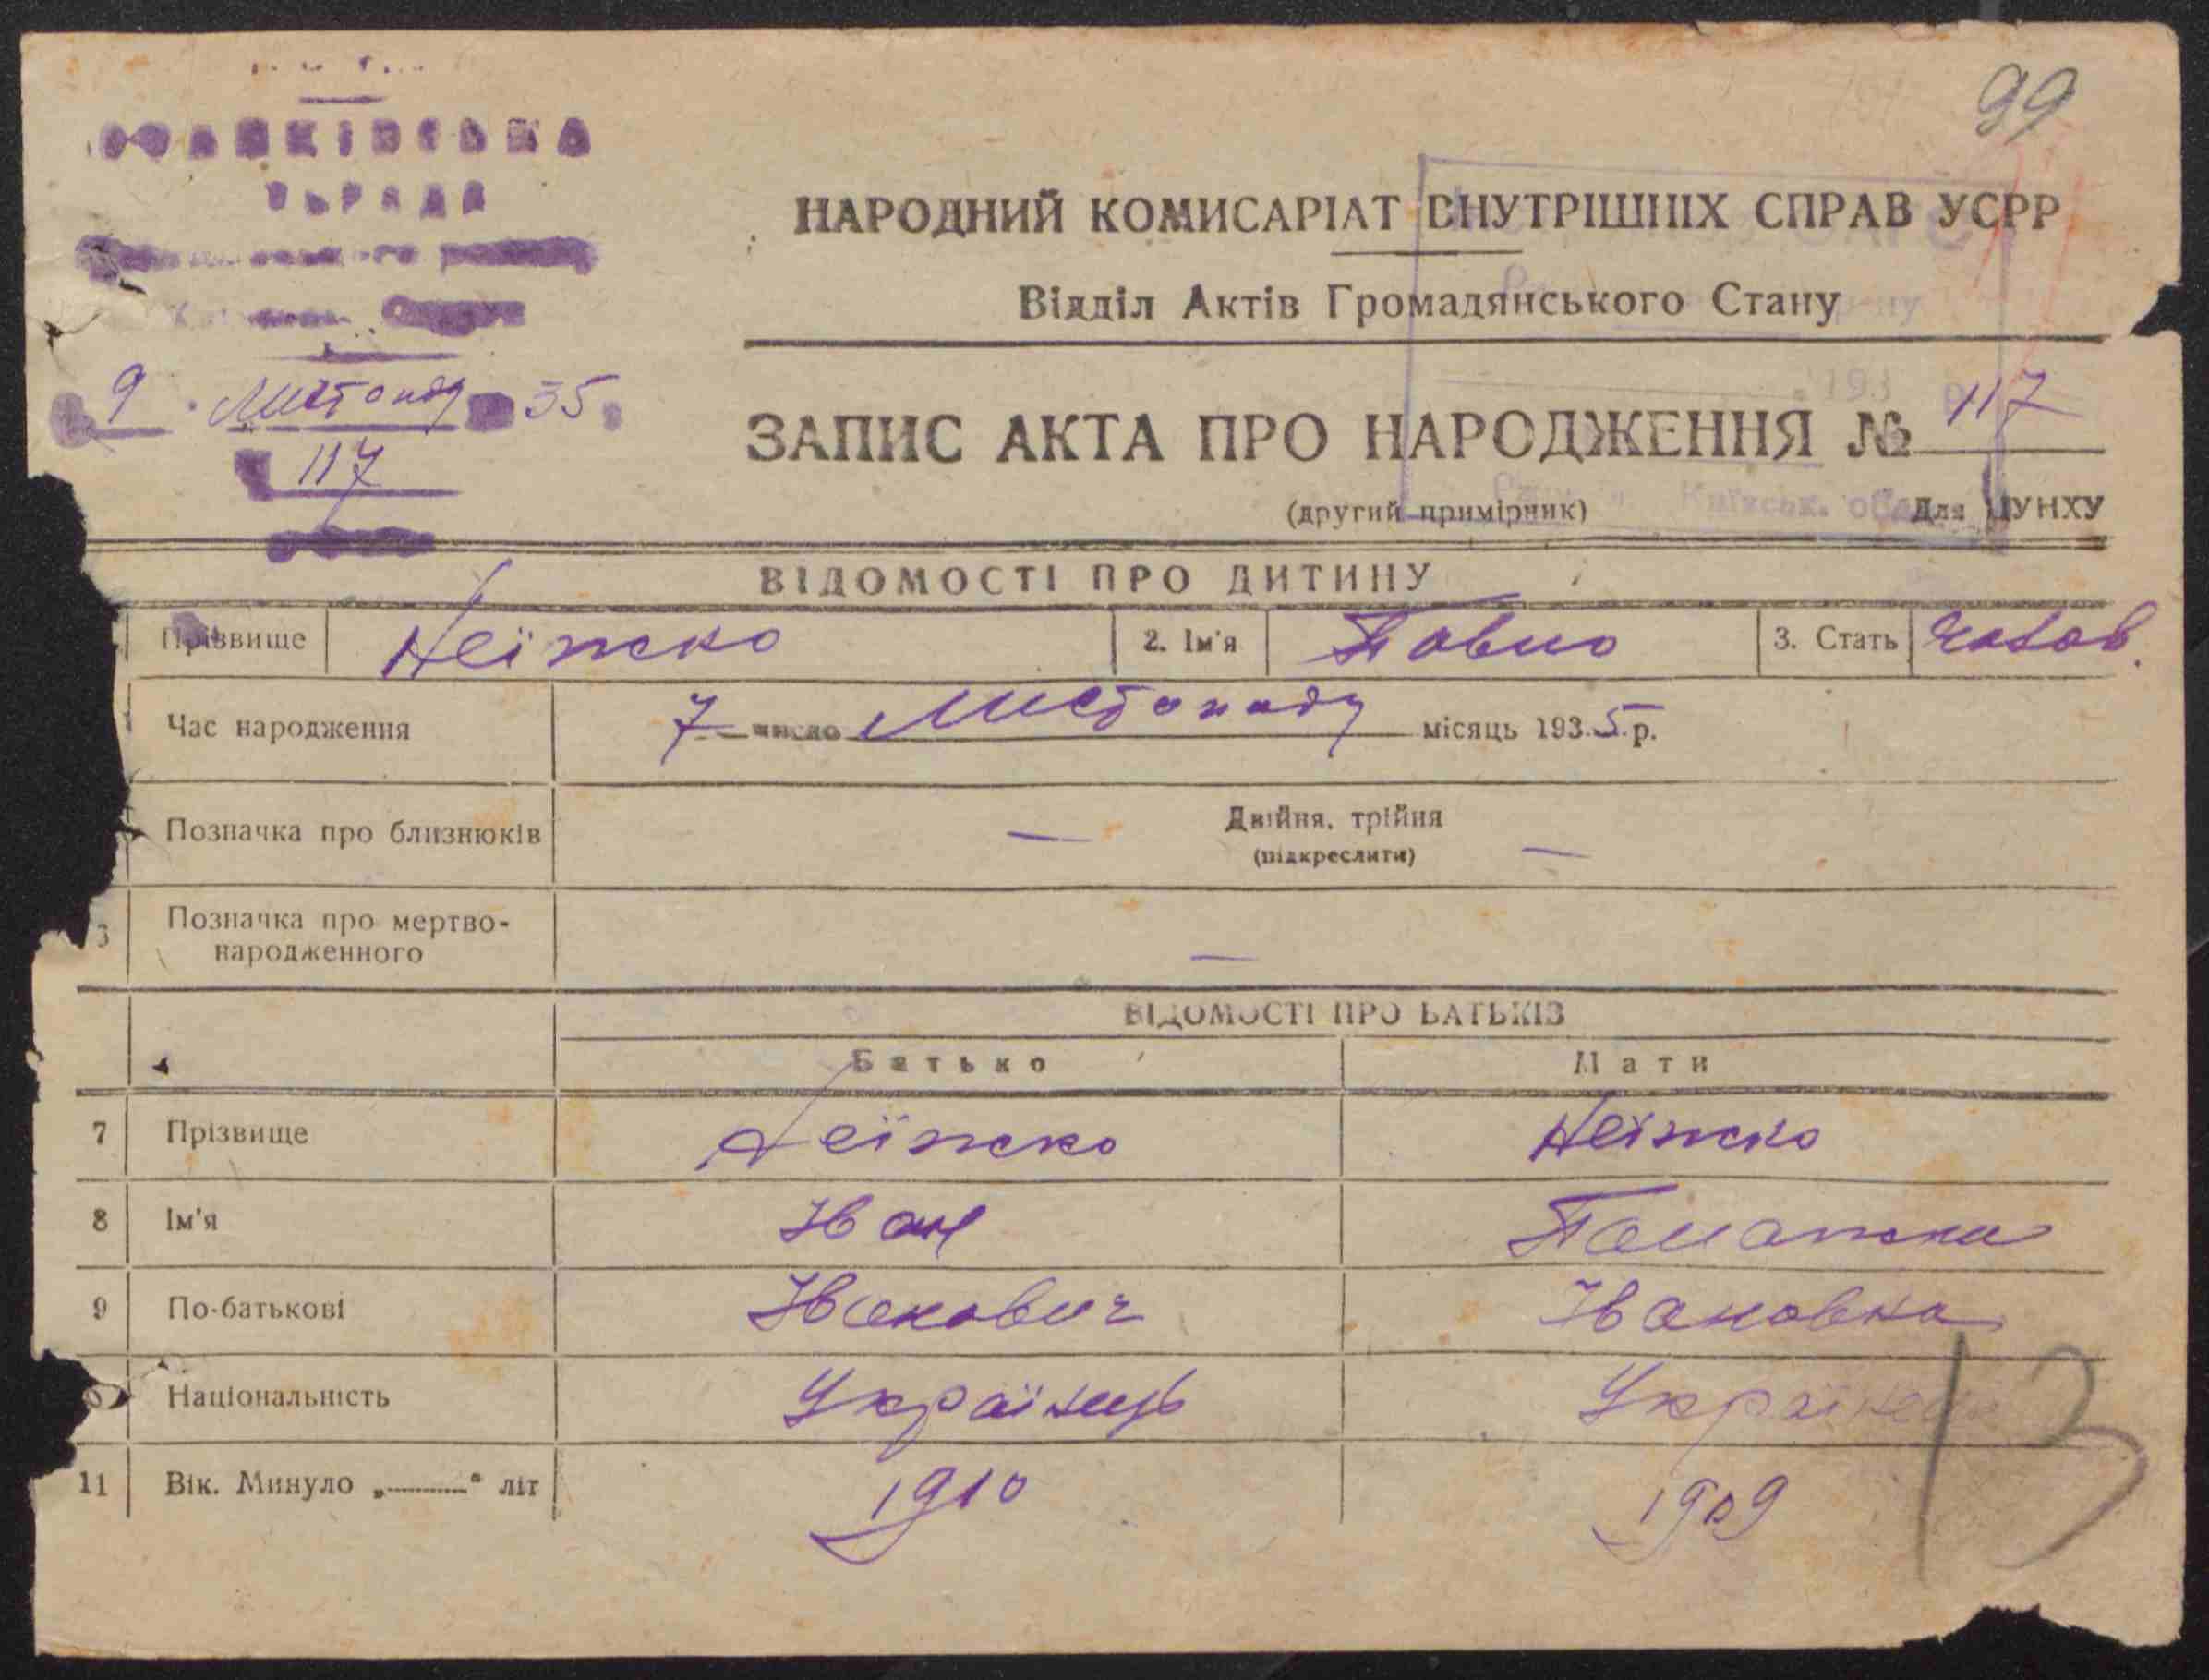 99
НАРОДНИЙ КОМИСАРІАТ ВНУТРІШНІХ СПРАВ УСРР
Відділ Актів Громадянського Стану
9 Листопаду 35
117
ЗАПИС АКТА ПРО НАРОДЖЕННЯ № 117
(другий примірник) Для ЦУНХУ
Київськ. обл.
ВІДОМОСТІ ПРО ДИТИНУ
Прізвище Неїжко 2. Ім'я Павло 3. Стать чолов.
Час народження 7 число Листопаду місяць 1935 р.
Позначка про близнюків — Двійня, трійня —
(підкреслити)
Позначка про мертво-
народженного —
ВІДОМОСТІ ПРО БАТЬКІВ
Батько Мати
7 Прізвище Неїжко Неїжко
8 Ім'я Іван
9 По-батькові Іванович Івановна
Національність Українець
11 Вік. Минуло „———“ літ 1910 1909
13